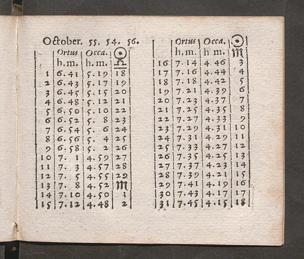 October. 55. 54. 56.
Ortus Occa. ☉
h. m. h. m. ♎
1 6.41 5.19 18
2 6.43 5.17 19
3 6.45 5.15 20
4 6.48 5.12 21
5 6.50 5.10 22
6 6.52 5.8 23
7 6.54 5.6 24
8 6.56 5.4 25
9 6.58 5.2 26
10 7.1 4.59 27
11 7.3 4.57 28
12 7.5 4.55 29
13 7.8 4.52 ♏
14 7.10 4.50 1
15 7.12 4.48 2
Ortus Occa. ☉
h. m. h. m. ♏
16 7.14 4.46 3
17 7.16 4.44 4
18 7.18 4.42 5
19 7.21 4.39 6
20 7.23 4.37 7
21 7.25 4.35 8
22 7.27 4.33 9
23 7.27 4.33 10
24 7.29 4.31 11
25 7.31 4.29 12
26 7.33 4.27 13
27 7.35 4.25 14
28 7.37 4.23 15
29 7.41 4.19 16
30 7.43 4.17 17
31 7.45 4.15 18